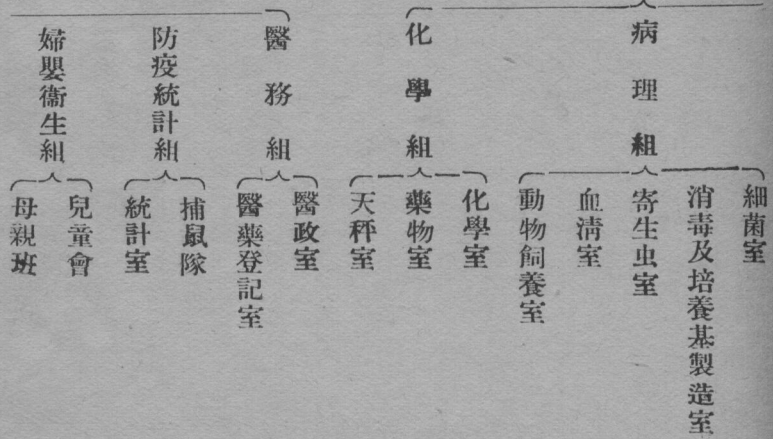 病理組
細菌室
消毒及培養基製造室
寄生虫室
血清室
動物飼養室
化學組
化學室
藥物室
天秤室
醫務組
醫政室
醫藥登記室
防疫統計組
捕鼠隊
統計室
婦嬰衞生組
兒童會
母親班